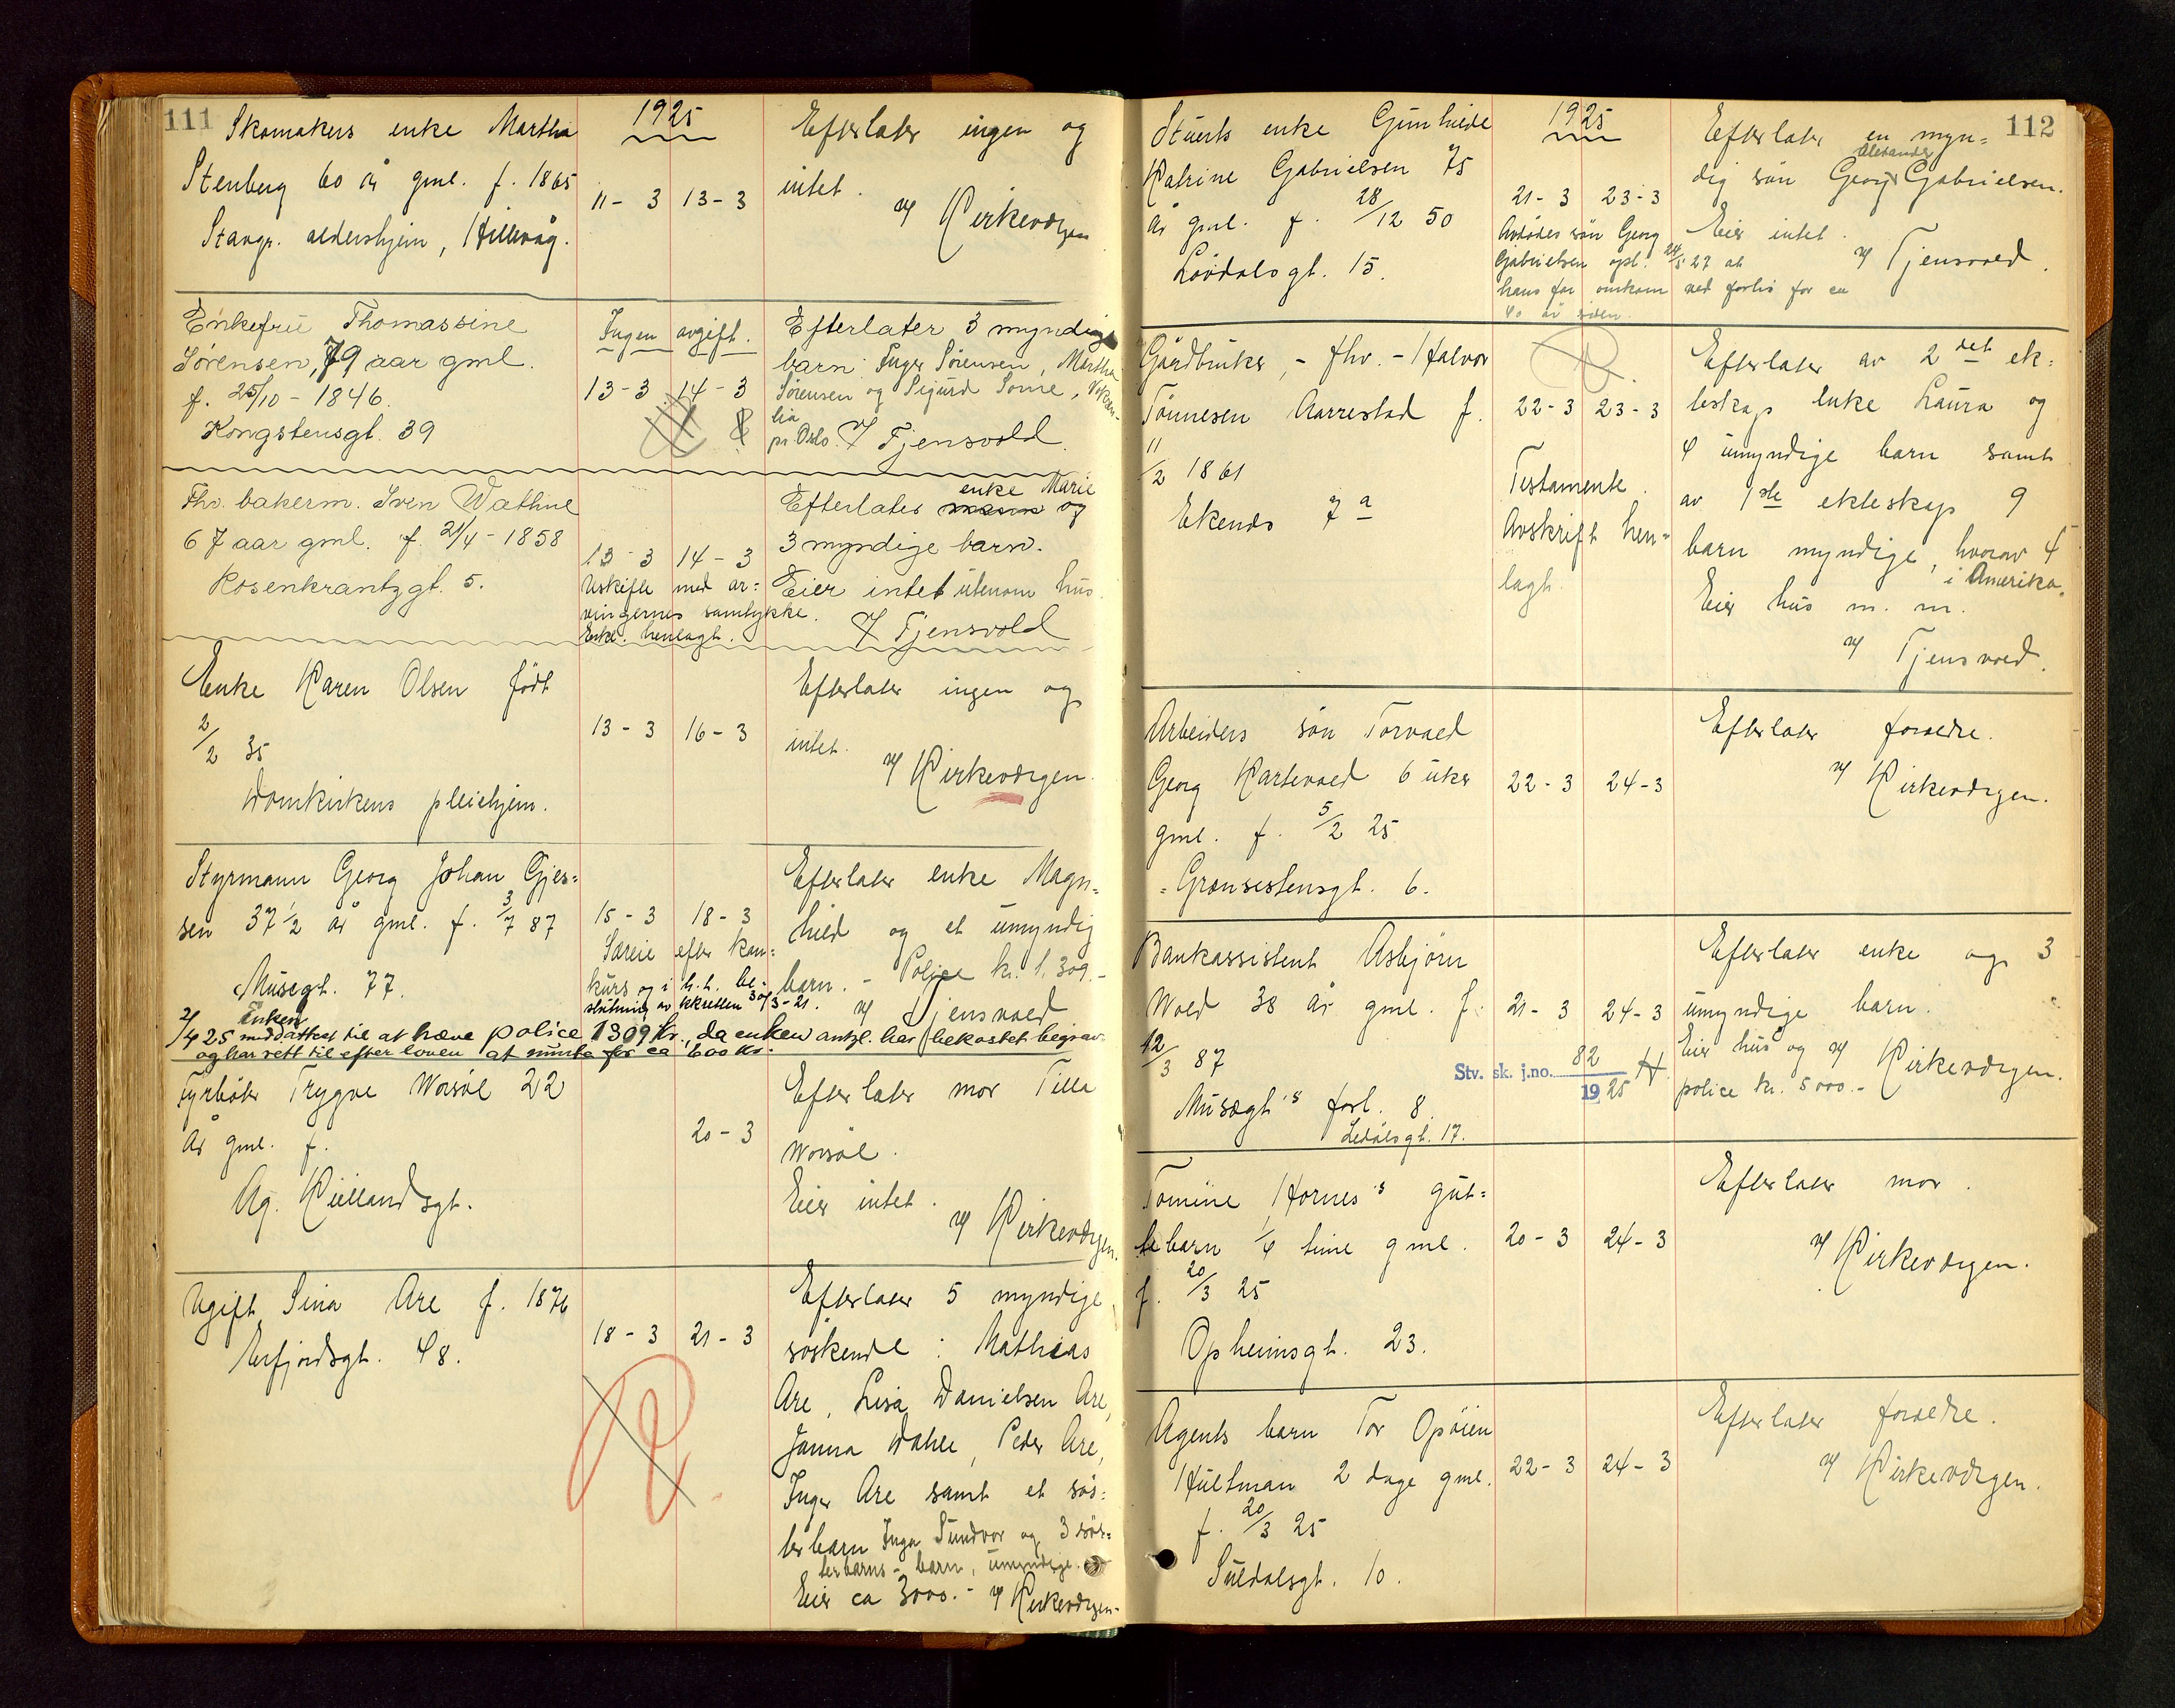 111
1925
Skomakers enke Martha
Stenberg 60 år gml. f. 1865
Stavgr. aldershjem, Hillevåg.
11-3 13-3
Efterlater ingen og
intet.
Kirkevergen
Enkefru Thomassine
Sørensen, 79 aar gml.
f. 25/10 - 1846.
Kongstensgt. 39
Ingen avgift.
13-3 14-3
Efterlater 3 myndige
barn: Inger Sørensen, Martha
Sørensen og Sigurd Somme,
pr. Oslo. Tjensvold.
Fhv. bakerm. Sven Wathne
67 aar gml. f. 21/4 - 1858
Rosenkrantzgt. 5.
13-3 14-3
Uskifte med ar-
vingernes samtykke.
Erkl. henlagt.
enke Marie
Efterlater mann og
3 myndige barn.
Eier intet utenom hus.
Tjensvold
Enke Karen Olsen født
2/2 35
Domkirkens pleiehjem.
13-3 16-3
Efterlater ingen og
intet.
Kirkevergen.
Styrmann Georg Johan Gjes-
sen 37 1/2 år gml. f. 3/7 87
Musegt. 77.
15-3 18-3
Særeie efter kon-
kurs og i h.t. be-
slutning av skkretten 30/3-21.
Efterlater enke Magn-
hild og et umyndig
barn. - Police kr. 1.309.-
Tjensvold
2/4 25 Enken meddr. attest til at hæve police 1309 kr., da enken antgl. har bekostet begrav.
og har rett til efter loven at nunta for ca 600 kr.
Fyrbøter Trygve Worsøl 22
år gml. f.
Ag. Kiellandsgt.
20-3
Efterlater mor Tilla
Worsøl.
Eier intet.
Kirkevergen.
Ugift Sina Are f. 1876
Erfjordsgt. 48.
18-3 21-3
Efterlater 5 myndige
søskende: Mathias
Are, Lisa Danielsen Are,
Janna Dahle, Peder Are,
Inger Are samt et søs-
terbarn Inga Sundvor og 3 søs-
terbarns-barn, umyndige.
Eier ca 3000.- Kirkevergen.
112
1925
Stuerts enke Gunhilde
Katrine Gabrielsen 75
år gml. f. 28/12 50
Løvdalsgt. 15.
21-3 23-3
Efterlater en myn-
Alexander
dig søn Georg Gabrielsen.
Eier intet.
Tjensvold.
Avdødes søn Georg
Gabrielsen opl. 24/5 27 at
hans far omkom ved forlis for ca
40 år siden.
Gårdbruker, - fhv. - Halvor
Tønnesen Aarrestad f.
11/2 1861
Ekends 7 a
22-3 23-3
Testamente.
Avskrift hen-
lagt.
Efterlater av 2det ek-
teskap enke Laura og
4 umyndige barn samt
av 1ste ekteskap 9
barn myndige, hvorav 4
i Amerika.
Eier hus m. m.
Tjensvold.
Arbeiders søn Torvald
Georg Hartevold 6 uker
gml. f. 5/2 25
Grønsestensgt. 6.
22-3 24-3
Efterlater foreldre.
Kirkevergen.
Bankassistent Asbjørn
Wold 38 år gml. f.
12/3 87
Musægt's forl. 8.
Ledålsgt. 17.
21-3 24-3
Stv. sk. j.no. 82
1925
Efterlater enke og 3
umyndige barn.
Eier hus og
police kr. 5000.-
Kirkevergen.
Tomine Hornes's gut-
tebarn 1/4 time gml.
f. 20/3 25
Opheimsgt. 23.
20-3 24-3
Efterlater mor.
Kirkevergen.
Agents barn Tor Opøien
Hultman 2 dage gml.
f. 20/3 25
Suldalsgt. 10.
22-3 24-3
Efterlater foreldre.
Kirkevergen.